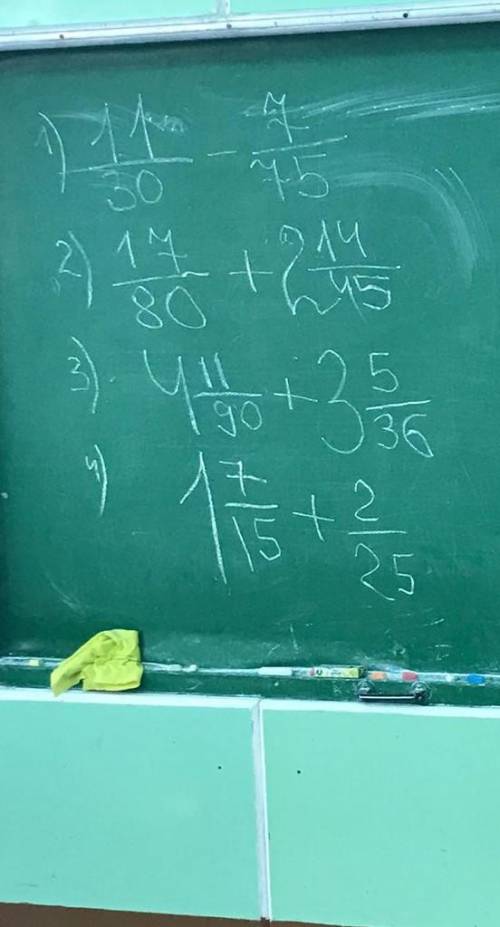 1) 11/30 - 7/75
2) 17/80 + 2 14/45
3) 4 11/90 + 3 5/36
4) 1 7/15 + 2/25